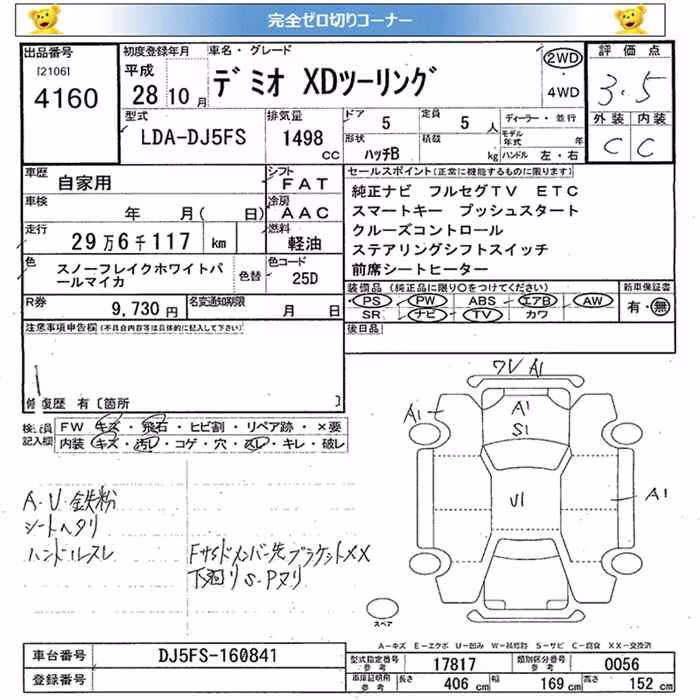 完全ゼロ切りコーナー
出品番号
[2106]
4160
初度登録年月
平成
28年10月
車名・グレード
デミオ XDツーリング
2WD
4WD
評価点
3.5
外装 内装
C C
型式
LDA-DJ5FS
排気量
1498
cc
ドア
5
定員
5 人
形状
ハッチB
積載
kg
ディーラー・並行
モデル年式 年
ハンドル 左・右
車歴
自家用
シフト
FAT
車検
年 月( 日)
冷房
AAC
走行
29万6千117 km
燃料
軽油
色
スノーフレイクホワイトパールマイカ
色替
色コード
25D
R券
9,730円
名変通知期限
月 日
セールスポイント(正常に機能するものに限ります)
純正ナビ フルセグTV ETC
スマートキー プッシュスタート
クルーズコントロール
ステアリングシフトスイッチ
前席シートヒーター
装備品 (純正品に限り○をつけてください)
PS PW ABS エアB AW
SR ナビ TV カワ
新車保証書
有・無
後日品
注意事項申告欄(不具合内容等は具体的に記入して下さい)
修復歴 有 [箇所 ]
検査員記入欄
FW キズ・飛石・ヒビ割・リペア跡・×要
内装 キズ・汚レ・コゲ・穴・スレ・キレ・破レ
A・U・鉄粉
シートヘタリ
ハンドルスレ
Fサイドメンバー先ブラケットXX
下廻リS・Pヌリ
ワレ A1
A1
A1
S1
U1
A1
スペア
A-キズ E-エクボ U-凹み W-補修跡 S-サビ C-腐食 XX-交換済
車台番号
DJ5FS-160841
登録番号
型式指定番号 参考
17817
類別区分番号 参考
0056
車庫証明用 参考
長さ 406 cm
幅 169 cm
高さ 152 cm